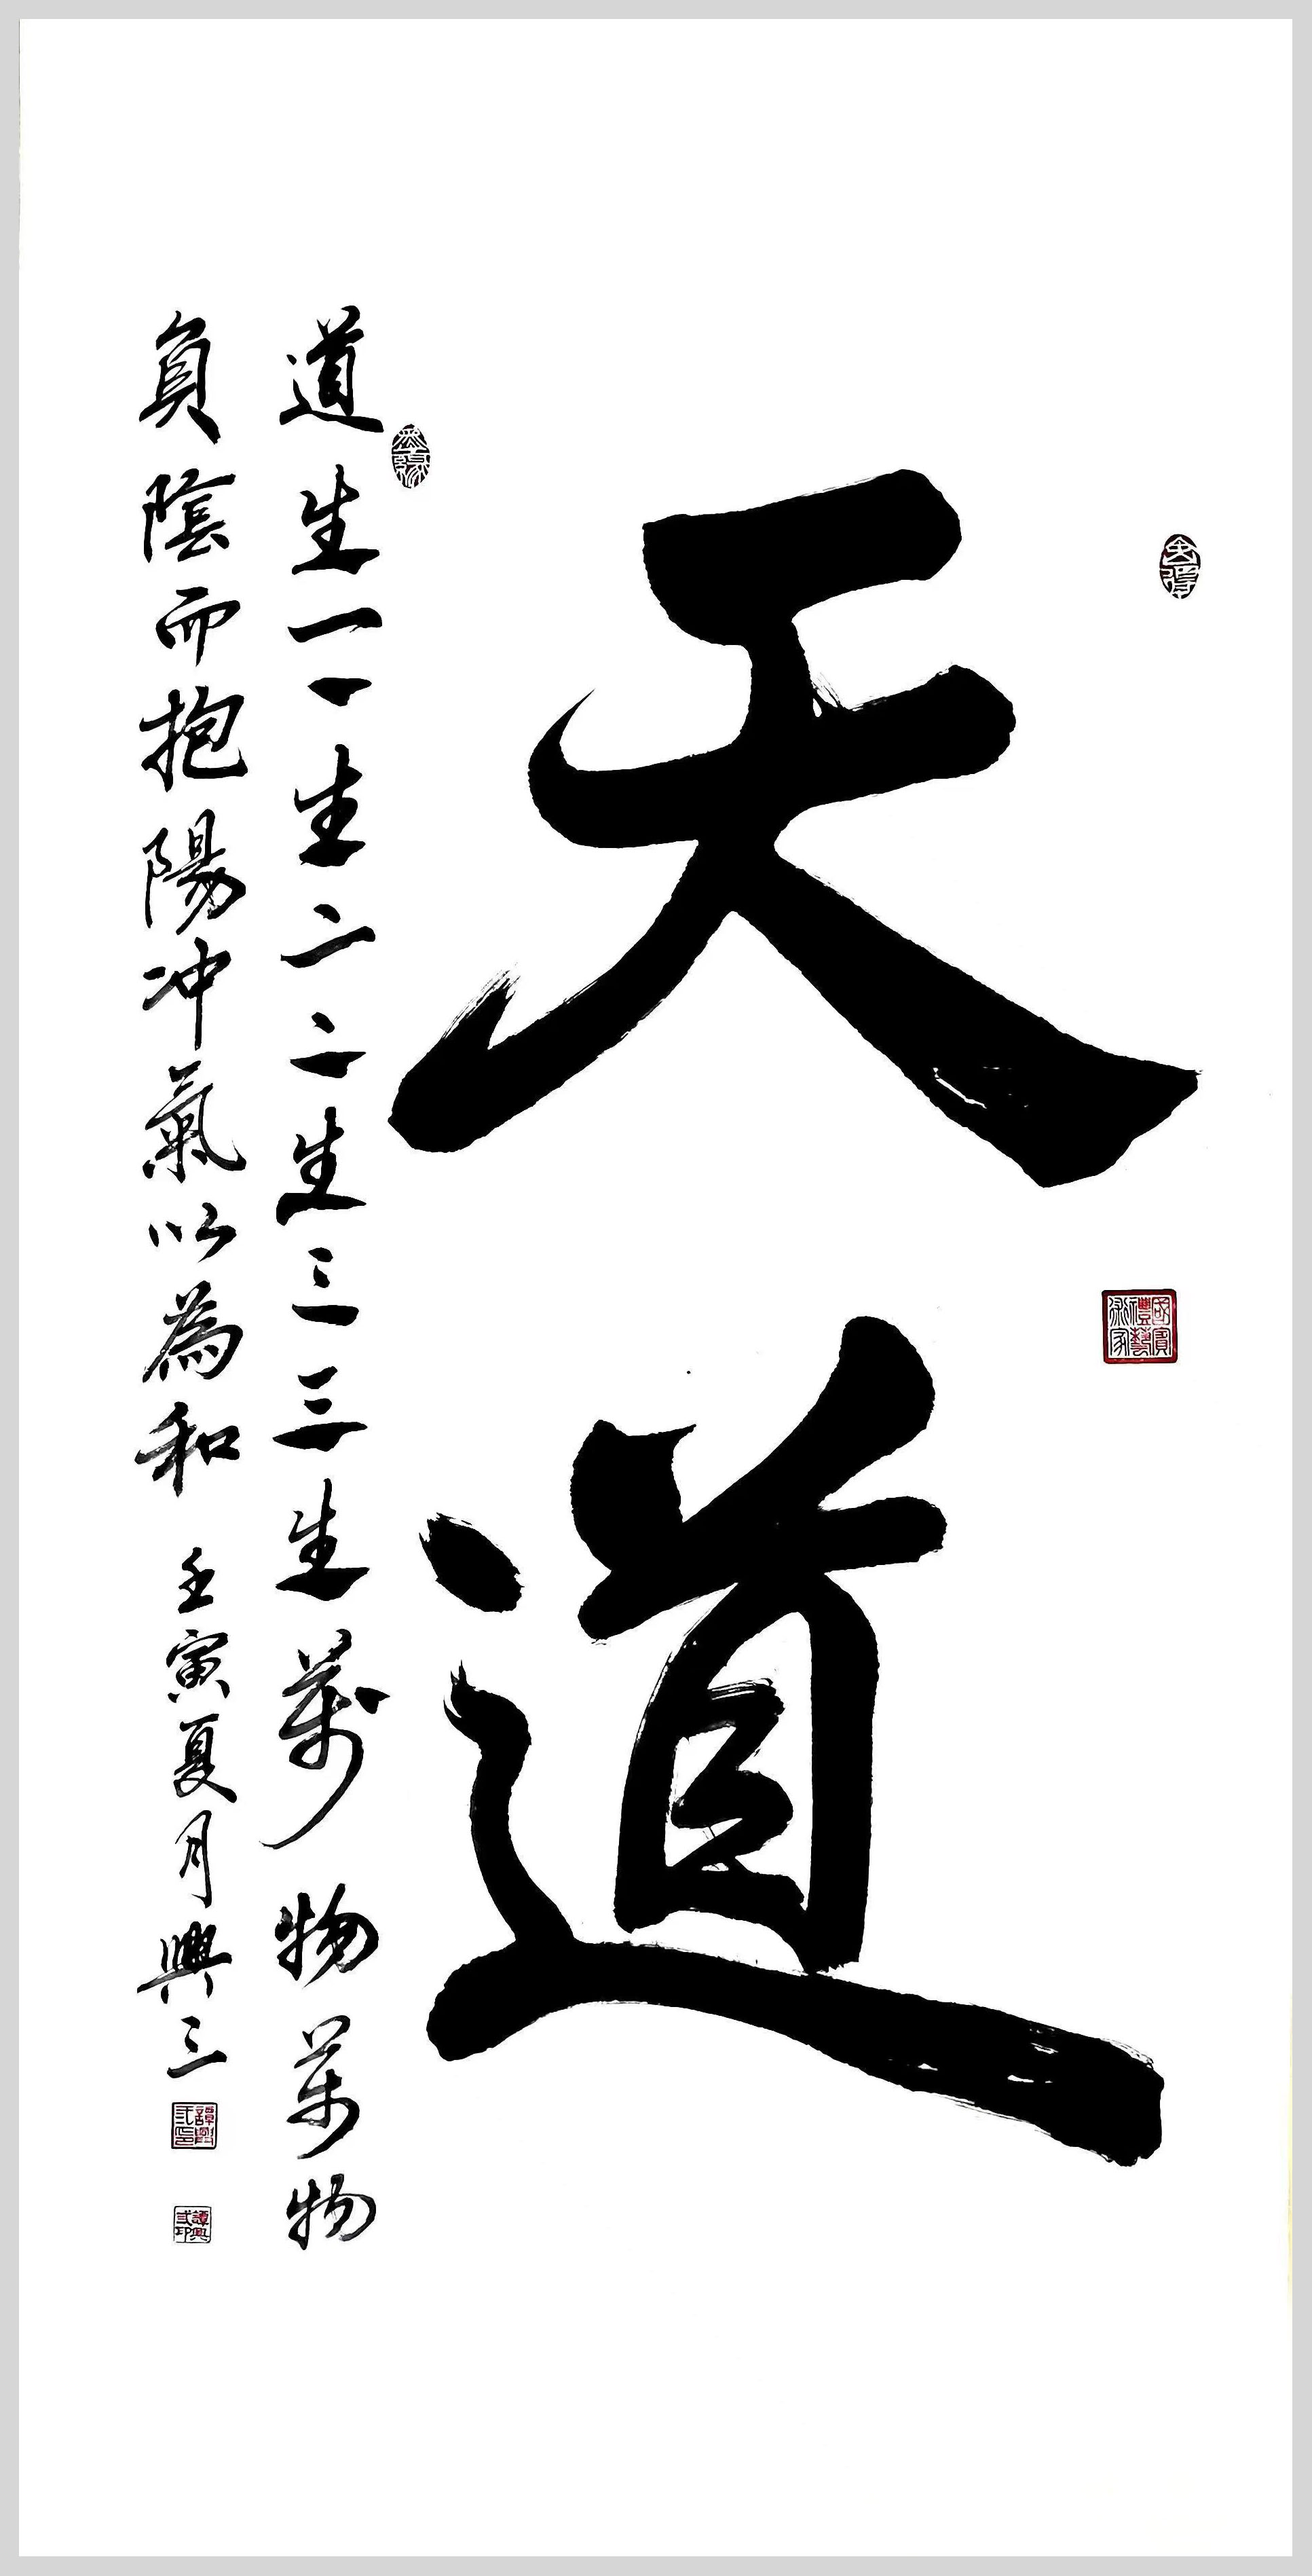 天道
道生一一生二二生三三生萬物萬物
負陰而抱陽冲氣以為和 壬寅夏月興三
國賓禮藝術家